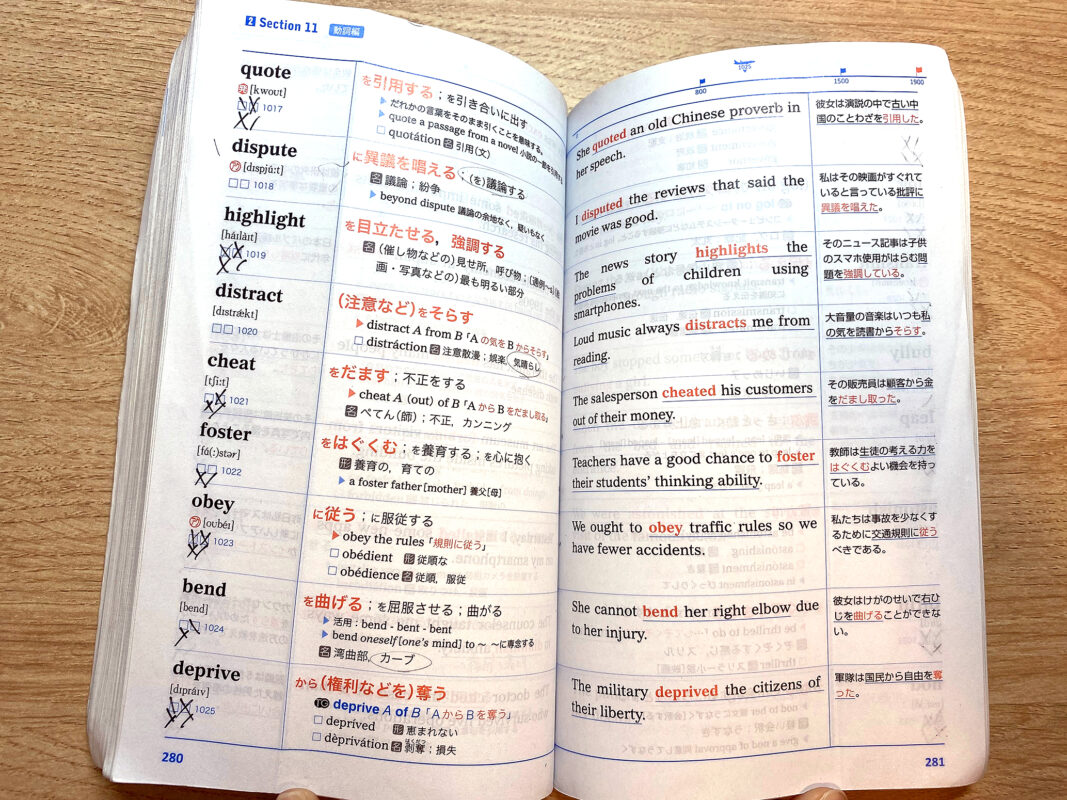 2 Section 11 動詞編
quote
発 [kwoʊt]
1017
を引用する；を引き合いに出す
▶だれかの言葉をそのまま引くことを意味する。
▶quote a passage from a novel 小説の一節を引用する
□ quotátion 名 引用(文)
dispute
ア [dɪspjúːt]
1018
に異議を唱える；(を)議論する
名 議論；紛争
▶beyond dispute 議論の余地なく，疑いもなく
highlight
[háɪlàɪt]
1019
を目立たせる，強調する
名 (催し物などの)見せ所，呼び物；(通例～s)(絵
画・写真などの)最も明るい部分
distract
[dɪstrǽkt]
1020
(注意など)をそらす
▶distract A from B「Aの気をBからそらす」
□ distráction 名 注意散漫；娯楽，気晴らし
cheat
[tʃiːt]
1021
をだます；不正をする
▶cheat A (out) of B「AからBをだまし取る」
名 ぺてん(師)；不正，カンニング
foster
[fá(ː)stər]
1022
をはぐくむ；を養育する；を心に抱く
形 養育の，育ての
▶a foster father[mother] 養父[母]
obey
ア [oʊbéɪ]
1023
に従う；に服従する
▶obey the rules「規則に従う」
□ obédient 形 従順な
□ obédience 名 従順，服従
bend
[bend]
1024
を曲げる；を屈服させる；曲がる
▶活用：bend - bent - bent
▶bend oneself [one's mind] to ～ ～に専念する
名 湾曲部，カーブ
deprive
[dɪpráɪv]
1025
から(権利などを)奪う
TG deprive A of B「AからBを奪う」
□ deprived 形 恵まれない
□ dèprivátion 名 剥奪；損失
はくだつ
280
800
1025
1500
1900
She quoted an old Chinese proverb in
her speech.
彼女は演説の中で古い中
国のことわざを引用した。
I disputed the reviews that said the
movie was good.
私はその映画がすぐれて
いると言っている批評に
異議を唱えた。
The news story highlights the
problems of children using
smartphones.
そのニュース記事は子供
のスマホ使用がはらむ問
題を強調している。
Loud music always distracts me from
reading.
大音量の音楽はいつも私
の気を読書からそらす。
The salesperson cheated his customers
out of their money.
その販売員は顧客から金
をだまし取った。
Teachers have a good chance to foster
their students' thinking ability.
教師は生徒の考える力を
はぐくむよい機会を持っ
ている。
We ought to obey traffic rules so we
have fewer accidents.
私たちは事故を少なくす
るために交通規則に従う
べきである。
She cannot bend her right elbow due
to her injury.
彼女はけがのせいで右ひ
じを曲げることができな
い。
The military deprived the citizens of
their liberty.
軍隊は国民から自由を奪
った。
281